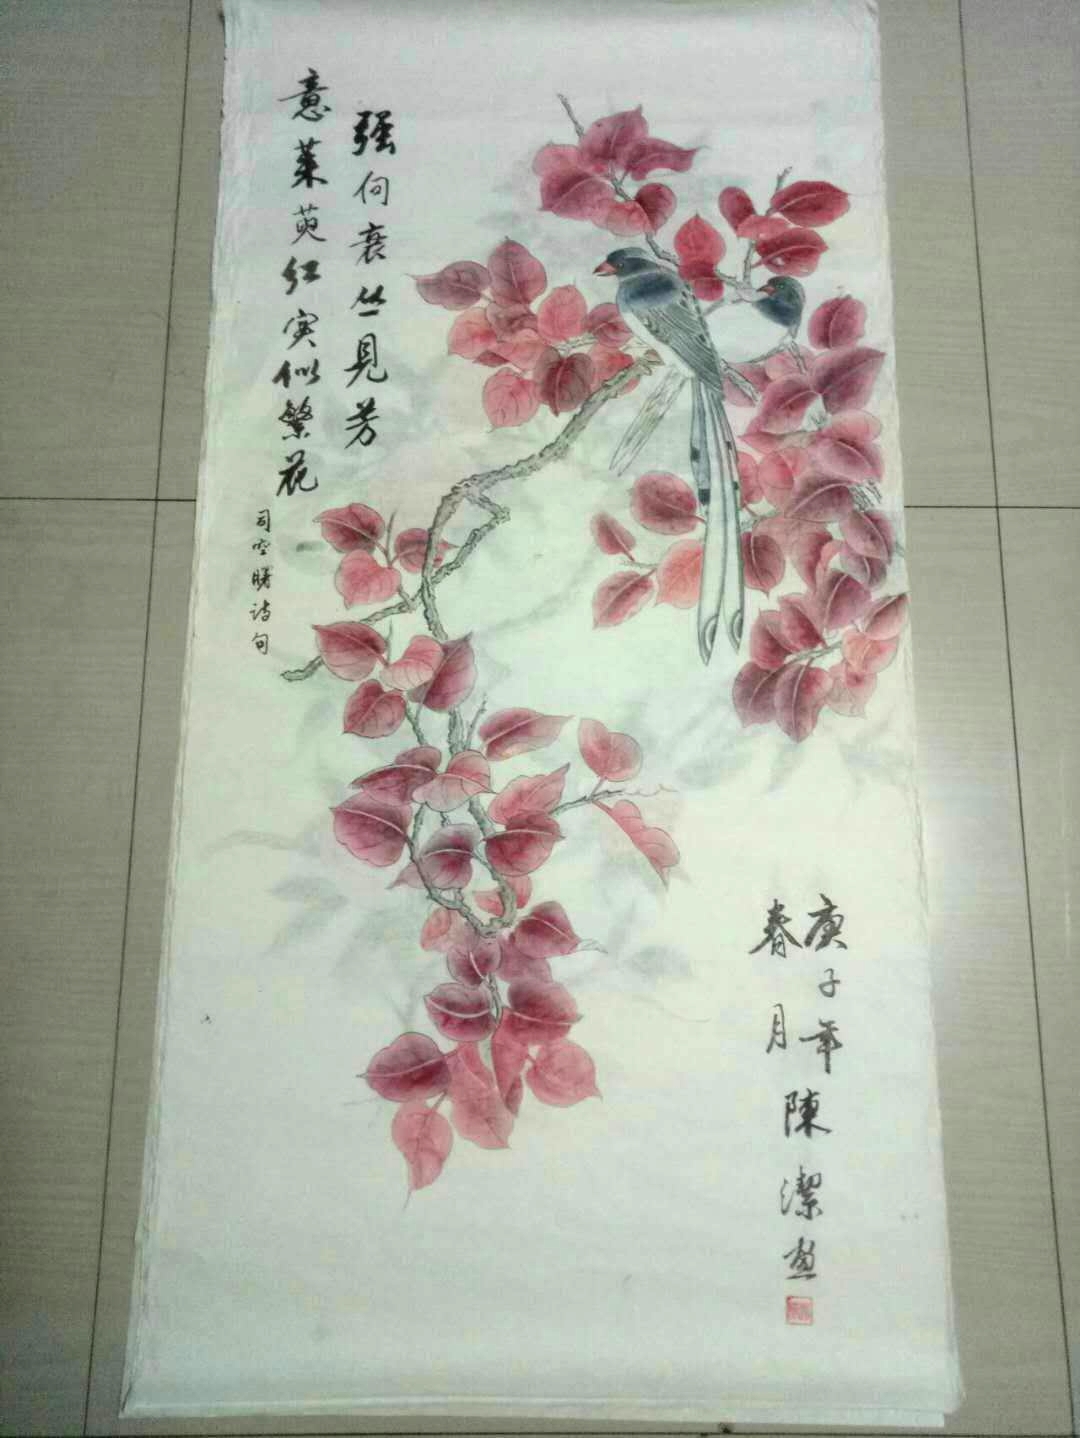 强向衰丛見芳
意茱萸红实似繁花
司空曙诗句
庚子年
春月
陳潔画